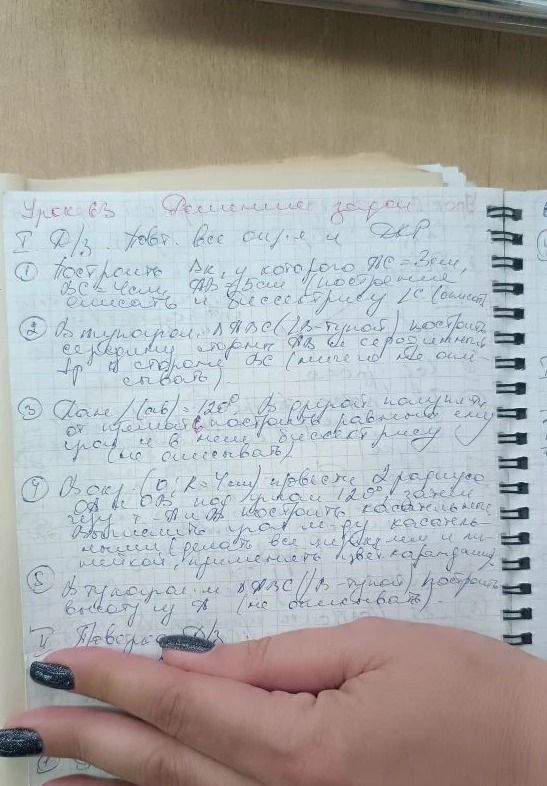 Урок 63 Решение задач
I Д/З. Повт. все опр-я и ДКР
① Построить Δк, у которого AC = 3см,
BC = 4см, AB = 5см (построение
описать и биссектрису ∠C (описат
② В тупоугол. ΔABC (∠B-тупой) построить
середину стороны AB и серединный
⊥р к стороне BC (ничего не опи-
сывать).
③ Дано ∠(ab) = 120°. В другой полупл-ти
от прямой построить равный ему
угол и в нем биссектрису
(не описывать)
④ В окр. (O; R = 4см) провести 2 радиуса
OA и OB под углом 120°, затем
через т. A и B построить касательные.
Вычислить угол м-ду касатель-
ными (делать все циркулем и ли-
нейкой, применять цвет. карандаши)
⑤ В тупоугол-м ΔABC (∠B-тупой) построить
высоту из A (не описывать).
II Д/З